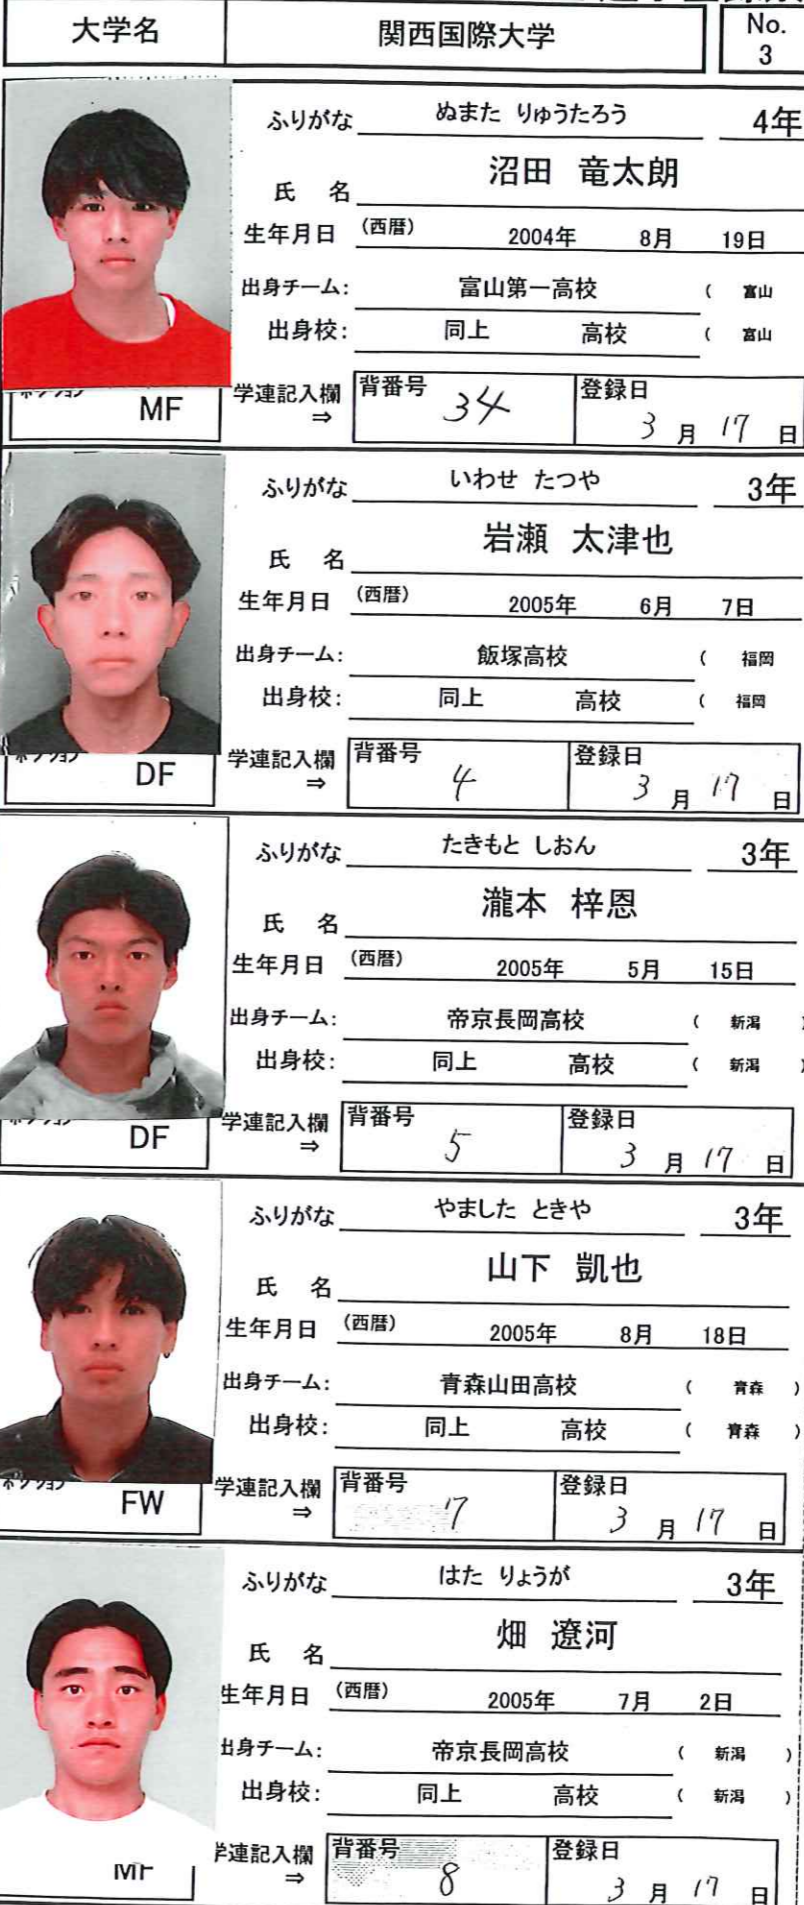 大学名 関西国際大学 No. 3
ふりがな ぬまた りゅうたろう 4年
氏 名 沼田 竜太朗
生年月日 (西暦) 2004年 8月 19日
出身チーム: 富山第一高校 ( 富山
出身校: 同上 高校 ( 富山
ポジション MF 学連記入欄 ⇒ 背番号 34 登録日 3 月 17 日
ふりがな いわせ たつや 3年
氏 名 岩瀬 太津也
生年月日 (西暦) 2005年 6月 7日
出身チーム: 飯塚高校 ( 福岡
出身校: 同上 高校 ( 福岡
ポジション DF 学連記入欄 ⇒ 背番号 4 登録日 3 月 17 日
ふりがな たきもと しおん 3年
氏 名 瀧本 梓恩
生年月日 (西暦) 2005年 5月 15日
出身チーム: 帝京長岡高校 ( 新潟 )
出身校: 同上 高校 ( 新潟 )
ポジション DF 学連記入欄 ⇒ 背番号 5 登録日 3 月 17 日
ふりがな やました ときや 3年
氏 名 山下 凱也
生年月日 (西暦) 2005年 8月 18日
出身チーム: 青森山田高校 ( 青森 )
出身校: 同上 高校 ( 青森 )
ポジション FW 学連記入欄 ⇒ 背番号 17 登録日 3 月 17 日
ふりがな はた りょうが 3年
氏 名 畑 遼河
生年月日 (西暦) 2005年 7月 2日
出身チーム: 帝京長岡高校 ( 新潟 )
出身校: 同上 高校 ( 新潟 )
MF 学連記入欄 ⇒ 背番号 8 登録日 3 月 17 日